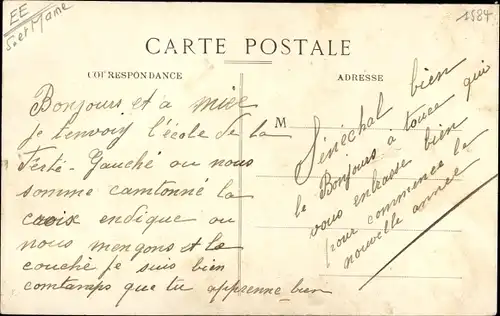 EE
S. et Marne
1584
CARTE POSTALE
CORRESPONDANCE
ADRESSE
Bonjours et a
je tenvoiy l'école de la
Ferté-Gauché ou nous
somme camtonné la
croix endique ou
nous mengons et le
couché je suis bien
comtamps que tu apprenne bien
M
Sénéchal bien
le Bonjours a touce qui
vous enbrasse bien
pour commence la
nouvelle annee